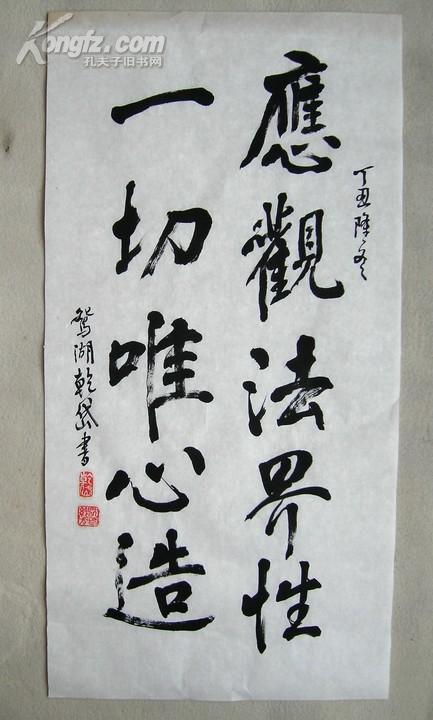 丁丑隆冬
應觀法界性
一切唯心造
鴛湖乾岱書
Kongfz.com
孔夫子旧书网